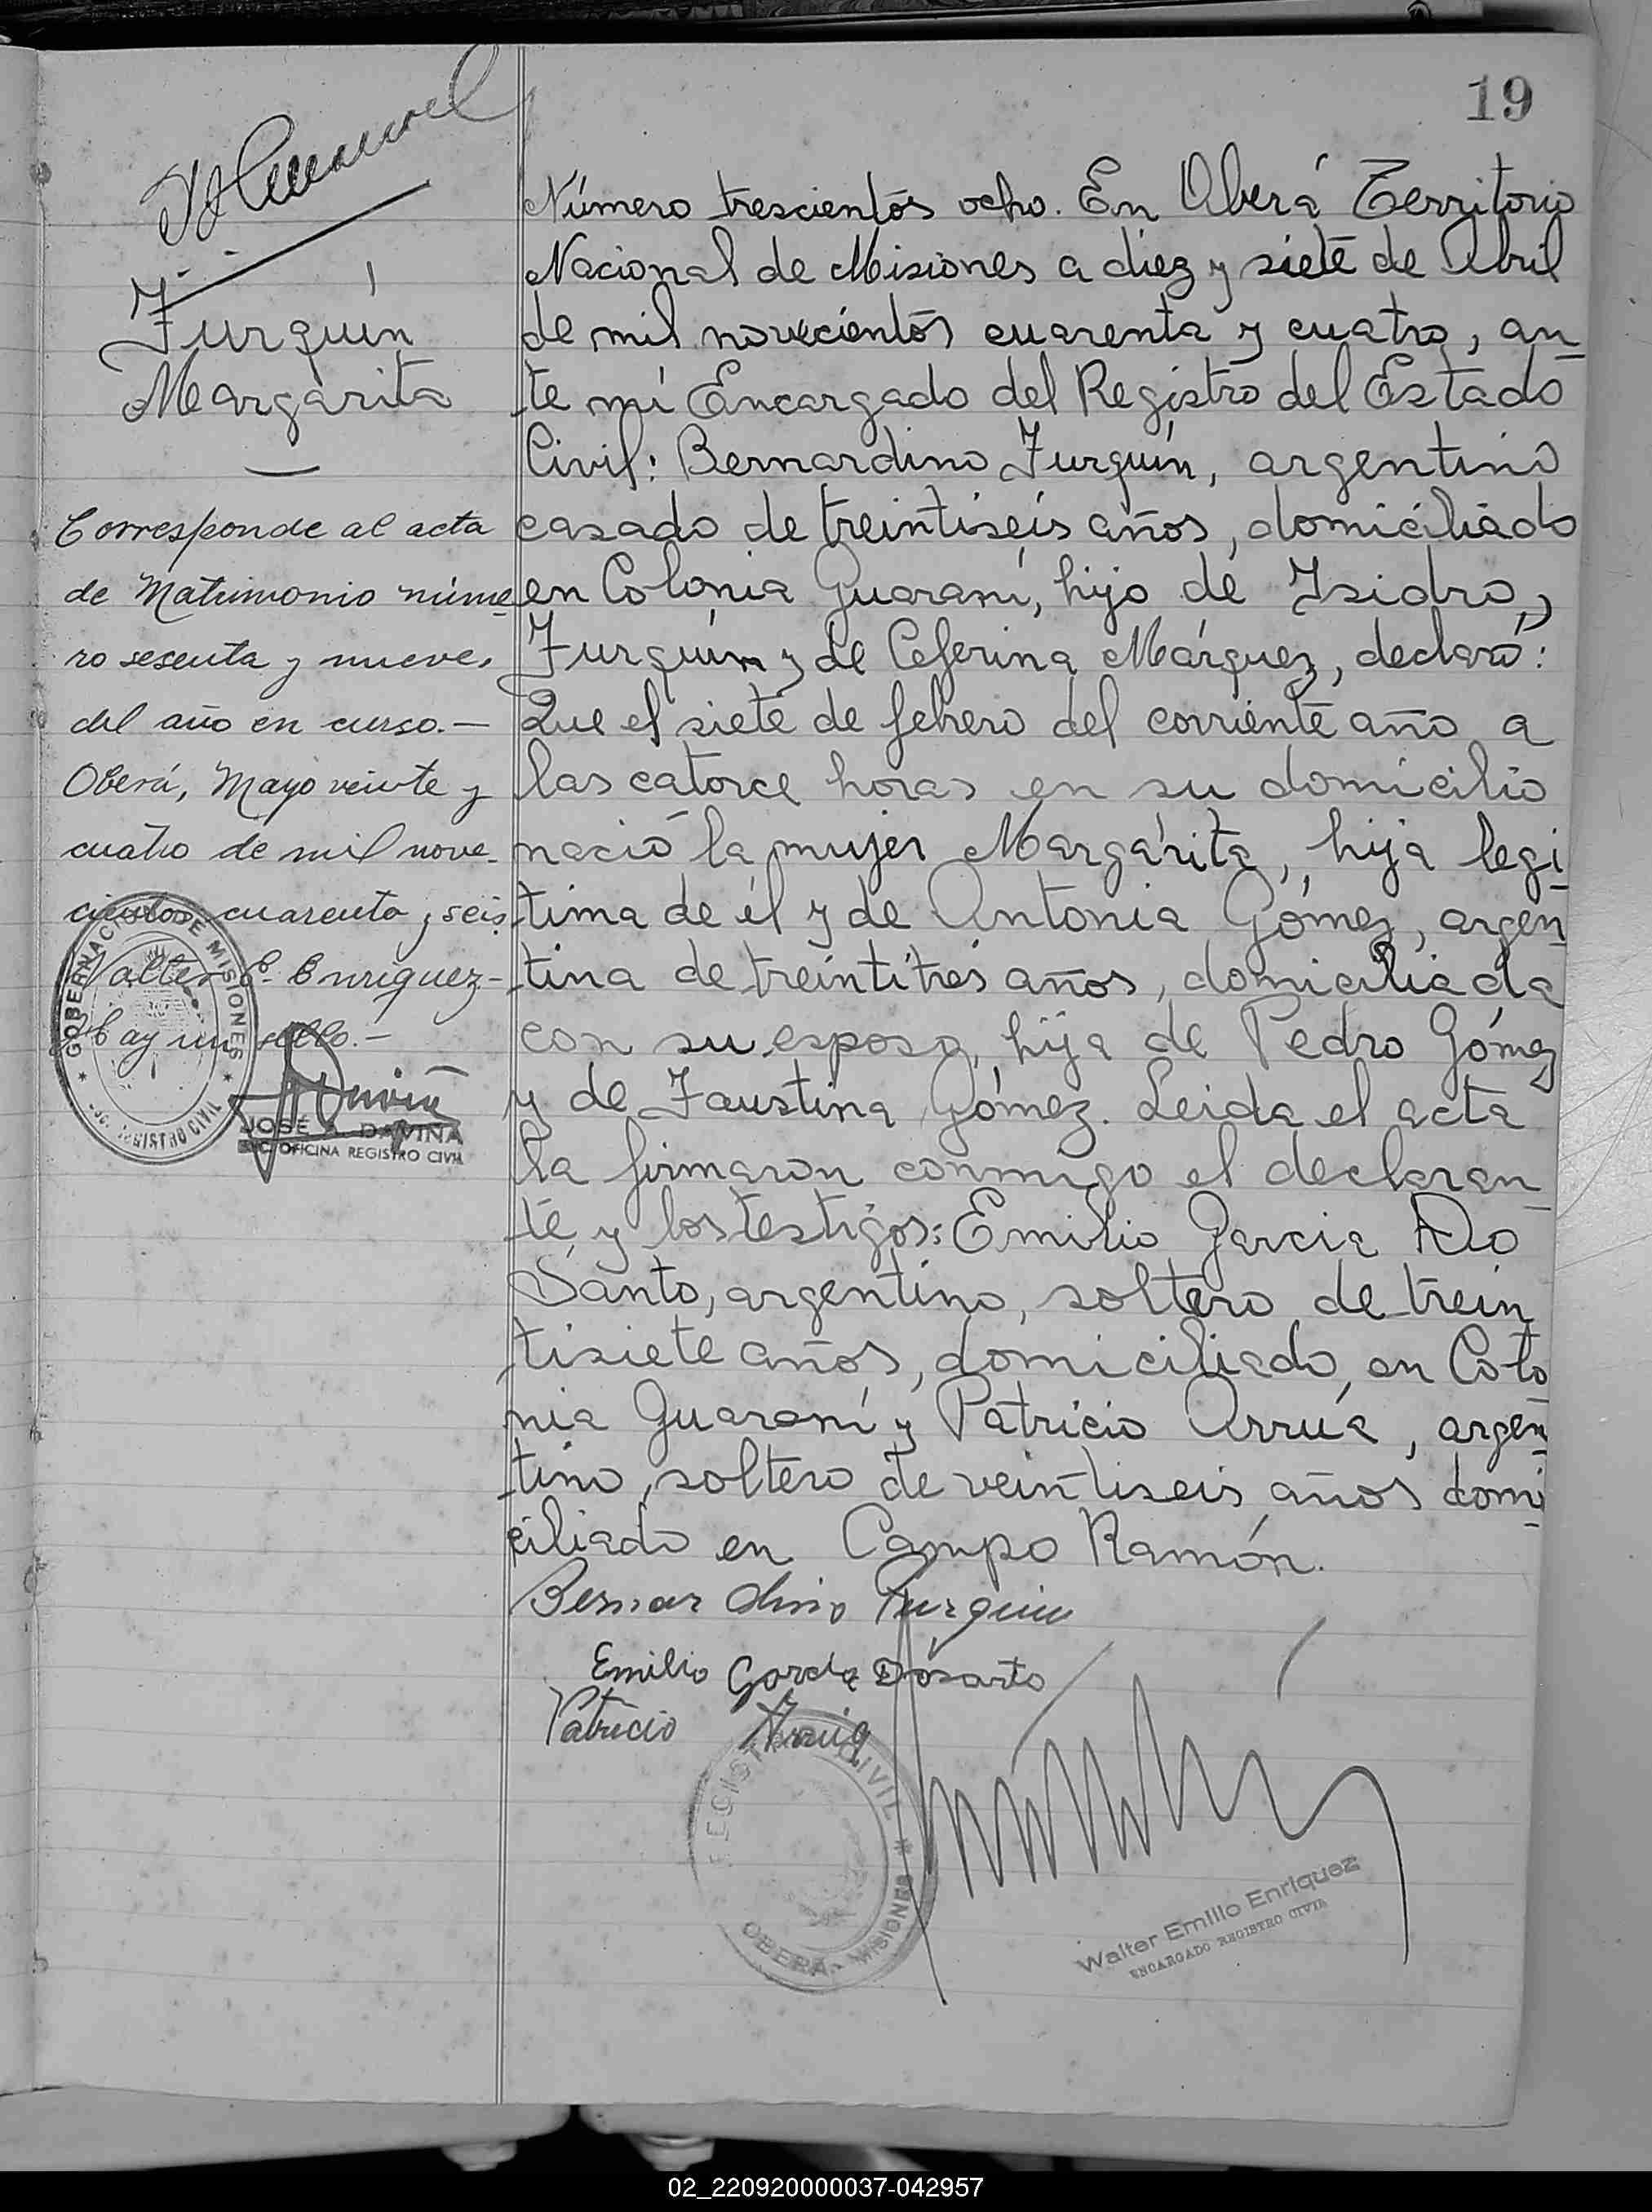 19
Furquín
Margarita
Corresponde al acta
de Matrimonio núme-
ro sesenta y nueve,
del año en curso.-
Oberá, Mayo veinte y
cuatro de mil nove-
cientos cuarenta y seis
Walter E. Enriquez-
Hay un sello.-
GOBERNACION DE MISIONES
REGISTRO CIVIL
JOSÉ A. DAVIÑA
OFICINA REGISTRO CIVIL
Número trescientos ocho. En Oberá Territorio
Nacional de Misiones a diez y siete de Abril
de mil novecientos cuarenta y cuatro, an-
te mí Encargado del Registro del Estado
Civil: Bernardino Furquín, argentino
casado de treintiseis años, domiciliado
en Colonia Guaraní, hijo de Isidro
Furquín y de Ceferina Márquez, declaró:
Que el siete de febrero del corriente año a
las catorce horas en su domicilio
nació la mujer Margárita, hija legi-
tima de él y de Antonia Gómez, argen-
tina de treintitrés años, domiciliada
con su esposo, hija de Pedro Gómez
y de Faustina Gómez. Leida el acta
la firmaron conmigo el declaran-
te y los testigos: Emilio Garcia Do
Santo, argentino, soltero de trein
tisiete años, domiciliado en Colo-
nia Guaraní y Patricio Arrúa, argen-
tino, soltero de veintiseis años domi-
ciliado en Campo Ramón.
Bernardino Furquin
Emilio Garcia Dosanto
Patricio
REGISTRO CIVIL
OBERA - MISIONES
Walter Emilio Enriquez
ENCARGADO REGISTRO CIVIL
02_220920000037-042957